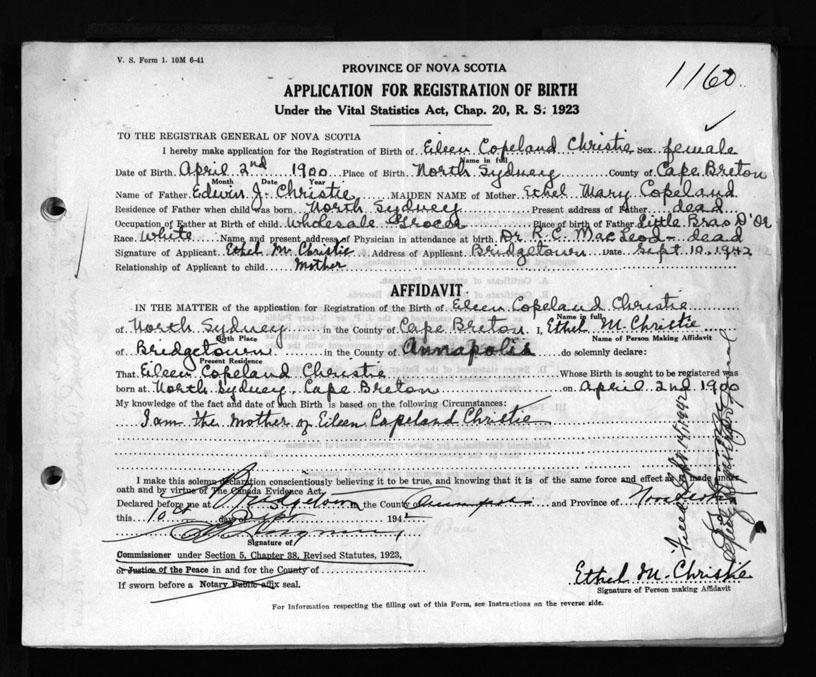 V. S. Form 1. 10M 6-41
1160
PROVINCE OF NOVA SCOTIA
APPLICATION FOR REGISTRATION OF BIRTH
Under the Vital Statistics Act, Chap. 20, R. S. 1923
TO THE REGISTRAR GENERAL OF NOVA SCOTIA
I hereby make application for the Registration of Birth of Eileen Copeland Christie Sex female
Name in full
Date of Birth April 2nd 1900 Place of Birth North Sydney County of Cape Breton
Month Date Year
Name of Father Edwin J. Christie MAIDEN NAME of Mother Ethel Mary Copeland
Residence of Father when child was born North Sydney Present address of Father dead
Occupation of Father at Birth of child Wholesale Grocer Place of birth of Father Little Bras D'Or
Race White Name and present address of Physician in attendance at birth Dr. K. C. MacLeod - dead
Signature of Applicant Ethel M Christie Address of Applicant Bridgetown Date Sept 10, 1942
Relationship of Applicant to child Mother
AFFIDAVIT
IN THE MATTER of the application for Registration of Birth of Eileen Copeland Christie
Name in full
of North Sydney in the County of Cape Breton I, Ethel M Christie
Birth Place Name of Person Making Affidavit
of Bridgetown in the County of Annapolis do solemnly declare:
Present Residence
That Eileen Copeland Christie Whose Birth is sought to be registered was
born at North Sydney, Cape Breton on April 2nd 1900
My knowledge of the fact and date of such Birth is based on the following Circumstances:
I am the mother of Eileen Copeland Christie
I make this solemn declaration conscientiously believing it to be true, and knowing that it is of the same force and effect as if made under
oath and by virtue of The Canada Evidence Act.
Declared before me at Bridgetown in the County of Annapolis and Province of Nova Scotia
this 10th day of Sept 1942
Signature of
Commissioner under Section 5, Chapter 38, Revised Statutes, 1923,
or Justice of the Peace in and for the County of
If sworn before a Notary Public affix seal.
Ethel M. Christie
Signature of Person making Affidavit
For Information respecting the filling out of this Form, see Instructions on the reverse side.